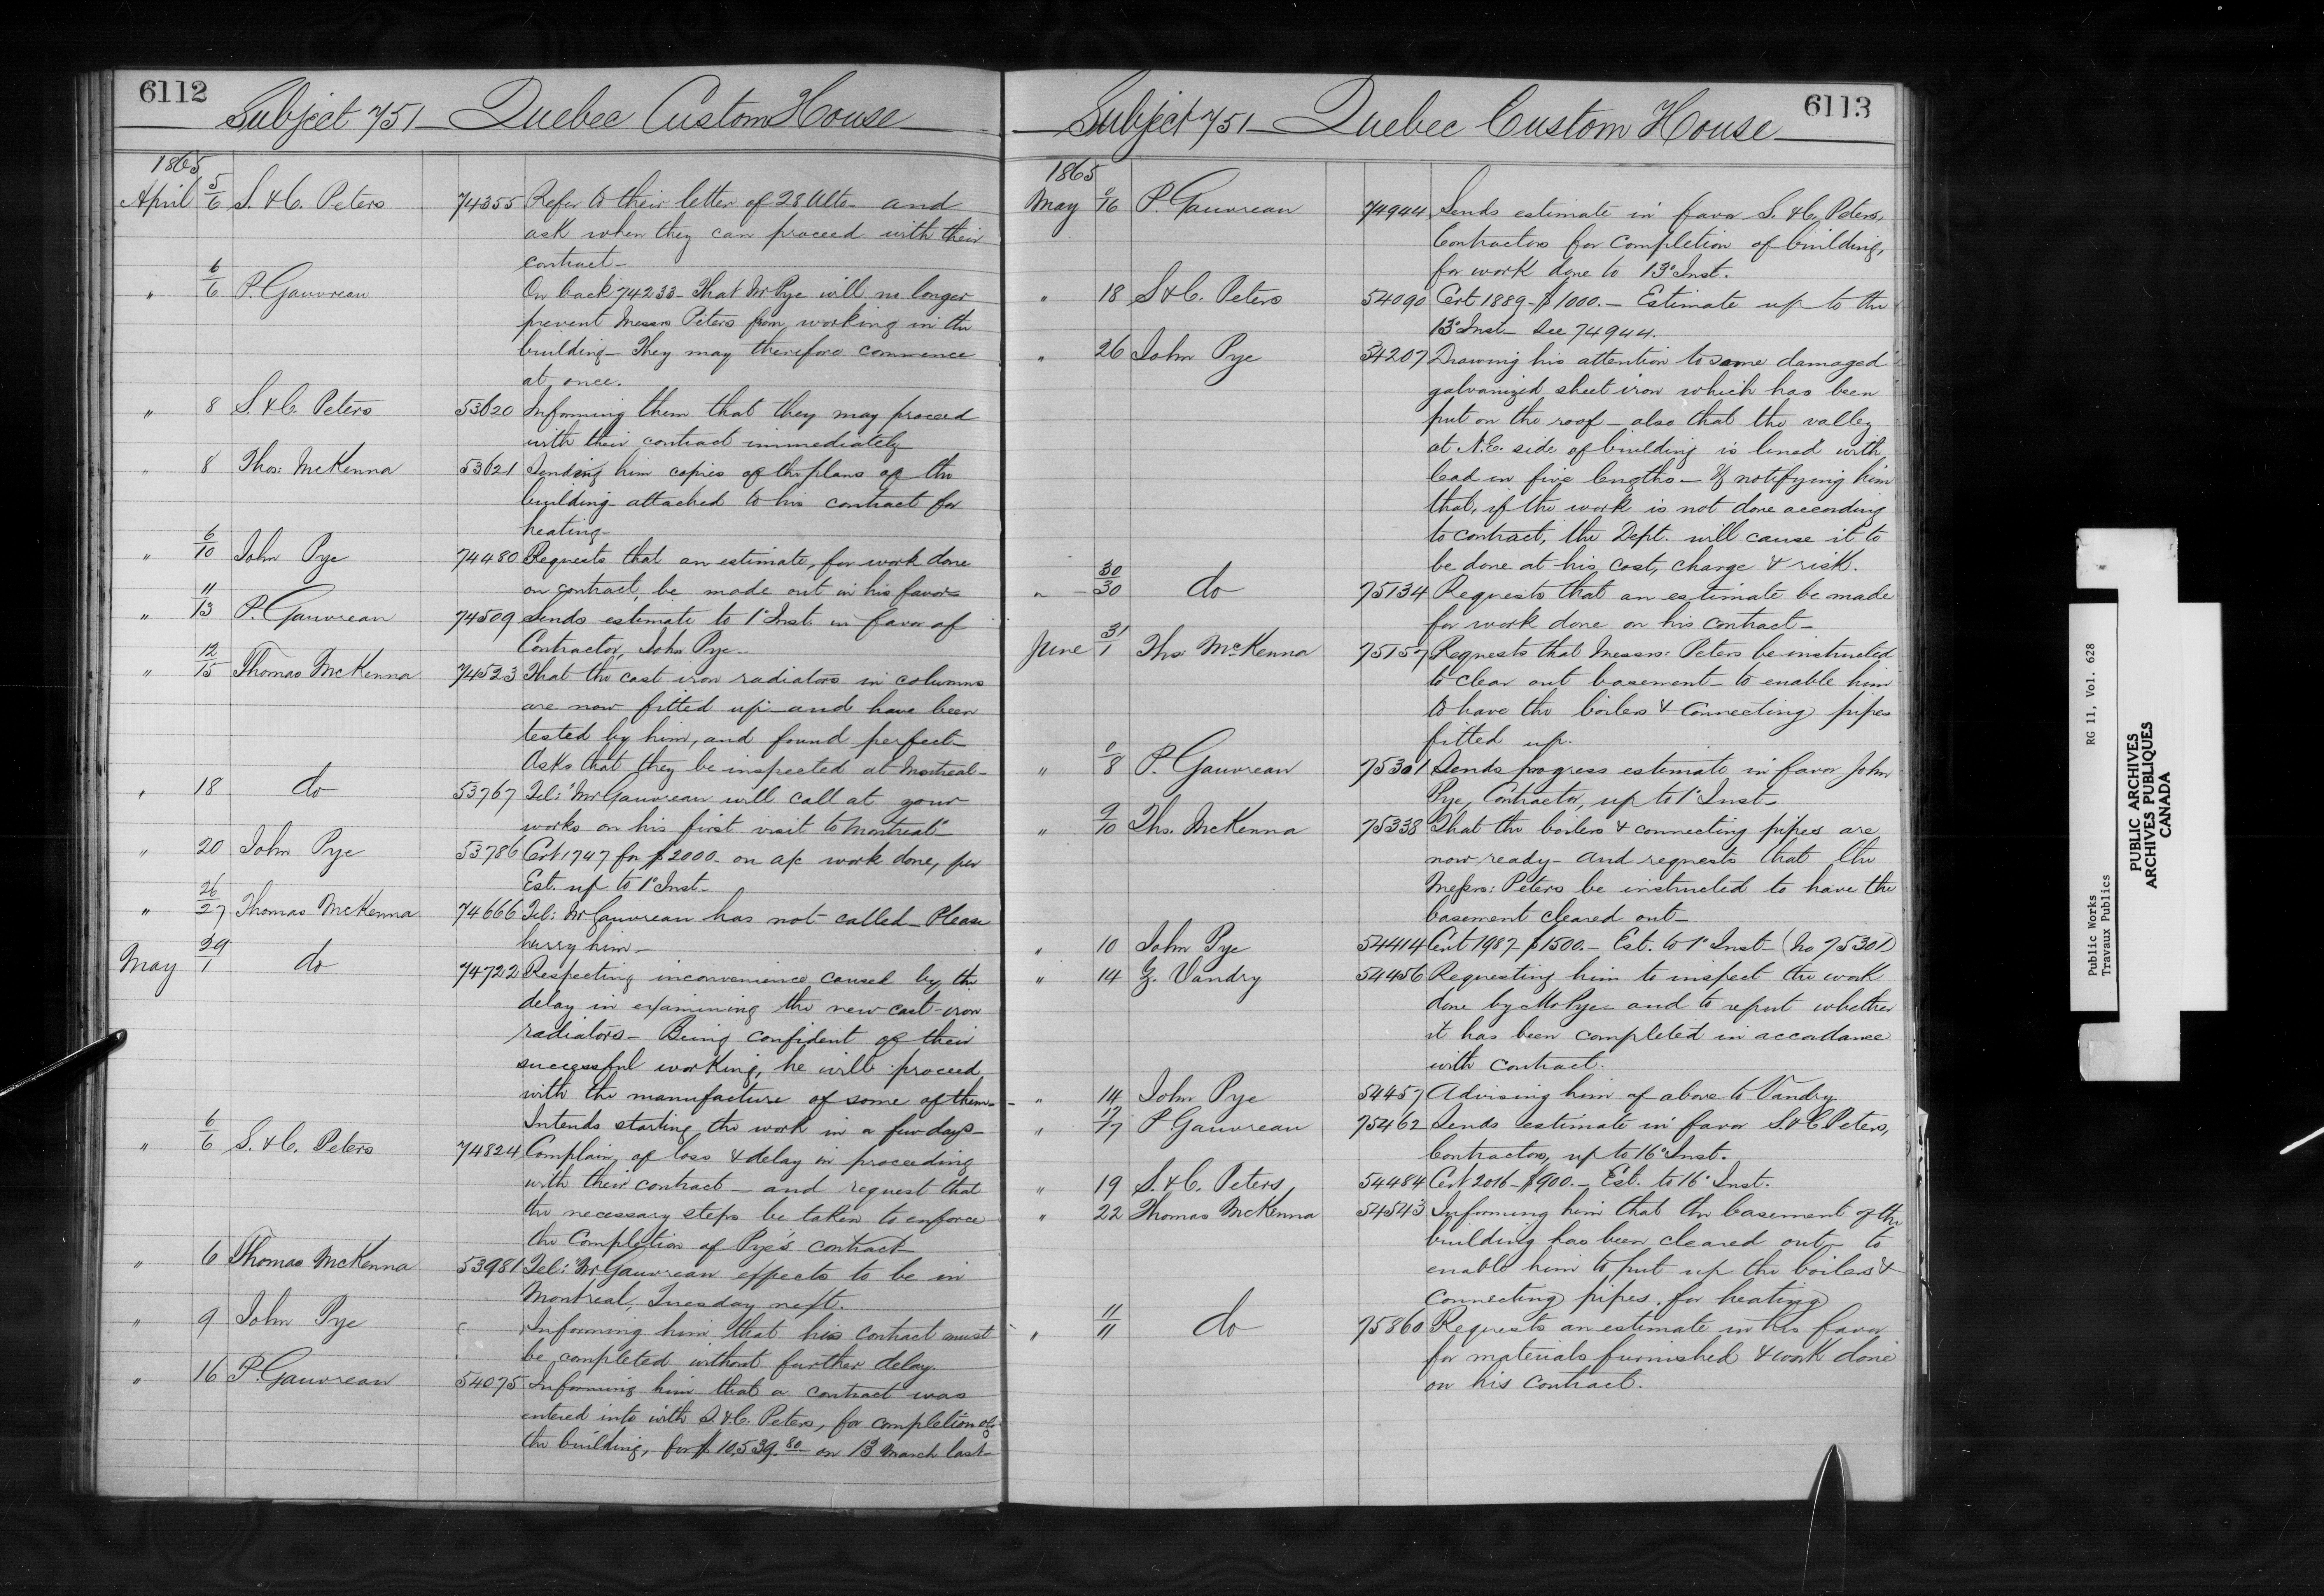 6112
Subject 751 - Quebec Custom House
1865
April 5/6 S. & C. Peters 74355 Refer to their letter of 28 Ulto- and
ask when they can proceed with their
contract-
" 6/6 P. Gauvreau On back 74233- That Mr Pye will no longer
prevent Messrs Peters from working in the
building- They may therefore commence
at once.
" 8 S. & C. Peters 53620 Informing them that they may proceed
with their contract immediately
" 8 Thos: McKenna 53621 Sending him copies of the plans of the
building attached to his contract for
heating-
" 6/10 John Pye 74480 Requests that an estimate, for work done
on contract, be made out in his favor-
" 11/13 P. Gauvreau 74509 Sends estimate to 1° Inst. in favor of
Contractor, John Pye-
" 12/15 Thomas McKenna 74523 That the cast iron radiators in columns
are now fitted up- and have been
tested by him, and found perfect-
Asks that they be inspected at Montreal-
" 18 do 53767 Tel: "Mr Gauvreau will call at your
works on his first visit to Montreal"
" 20 John Pye 53786 Cert 1747 for $2000- on a/c work done, per
Est. up to 1° Inst-
" 26/27 Thomas McKenna 74666 Tel: Mr Gauvreau has not called- Please
hurry him-
May 29/1 do 74722 Respecting inconvenience caused by the
delay in examining the new cast-iron
radiators- Being confident of their
successful working, he will proceed
with the manufacture of some of them-
Intends starting the work in a few days-
" 6/6 S. & C. Peters 74824 Complain, of loss & delay in proceeding
with their contract- and request that
the necessary steps be taken to enforce
the Completion of Pye's contract
" 6 Thomas McKenna 53981 Tel: "Mr Gauvreau expects to be in
Montreal, Tuesday next.
" 9 John Pye Informing him that his contract must
be completed without further delay.
" 16 P. Gauvreau 54075 Informing him that a contract was
entered into with S. & C. Peters, for completion of
the building, for $10,539.80 on 13 March last-
6113
Subject 751 - Quebec Custom House
1865
May 16 P. Gauvreau 74944 Sends estimate in favor S. & C. Peters,
Contractors for completion of building,
for work done to 13° Inst.
" 18 S & C. Peters 54090 Cert 1889- $1000.- Estimate up to the
13° Inst- See 74944.
" 26 John Pye 54207 Drawing his attention to some damaged
galvanized sheet iron which has been
put on the roof- also that the valley
at N.E. side of building is lined with
lead in five lengths- & notifying him
that, if the work is not done according
to contract, the Dept. will cause it to
be done at his cost, charge & risk.
" 30/30 do 75134 Requests that an estimate be made
for work done on his contract-
June 31/1 Thos: McKenna 75157 Requests that Messrs: Peters be instructed
to clear out basement- to enable him
to have the boilers & connecting pipes
fitted up.
" 8 P. Gauvreau 75301 Sends progress estimate in favor John
Pye, Contractor, up to 1° Inst-
" 9/10 Thos. McKenna 75338 That the boilers & connecting pipes are
now ready- and requests that the
Messrs: Peters be instructed to have the
basement cleared out-
" 10 John Pye 54414 Cert 1987- $1500.- Est. to 1° Inst- (No 75301)
" 14 Z. Vandry 54456 Requesting him to inspect the work
done by Mr Pye- and to report whether
it has been completed in accordance
with contract.
" 14 John Pye 54457 Advising him of above to Vandry
" 17/17 P. Gauvreau 75462 Sends estimate in favor S. & C. Peters,
Contractors, up to 16° Inst.
" 19 S. & C. Peters 54484 Cert 2016- $900.- Est. to 16° Inst.
" 22 Thomas McKenna 54543 Informing him that the basement of the
building has been cleared out- to
enable him to put up the boilers &
connecting pipes for heating
" 11/11 do 75860 Requests an estimate in his favor
for materials furnished & work done
on his contract.
Public Works RG 11, Vol. 628
Travaux Publics
PUBLIC ARCHIVES
ARCHIVES PUBLIQUES
CANADA